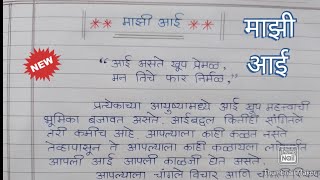 माझी आई
माझी
आई
NEW
" आई असते खूप प्रेमळ,
मन तिचे फार निर्मळ, "
प्रत्येकाच्या आयुष्यामध्ये आई खूप महत्वाची
भूमिका बजावत असते. आईबद्दल कितीही सांगितले
तरी कमीच आहे. आपल्याला काही कळत नसते
तेव्हापासून ते आपल्याला काही कळायला लागेपर्यंत
आपली आई आपली काळजी घेत असते.
आपल्याला चांगले विचार आणि